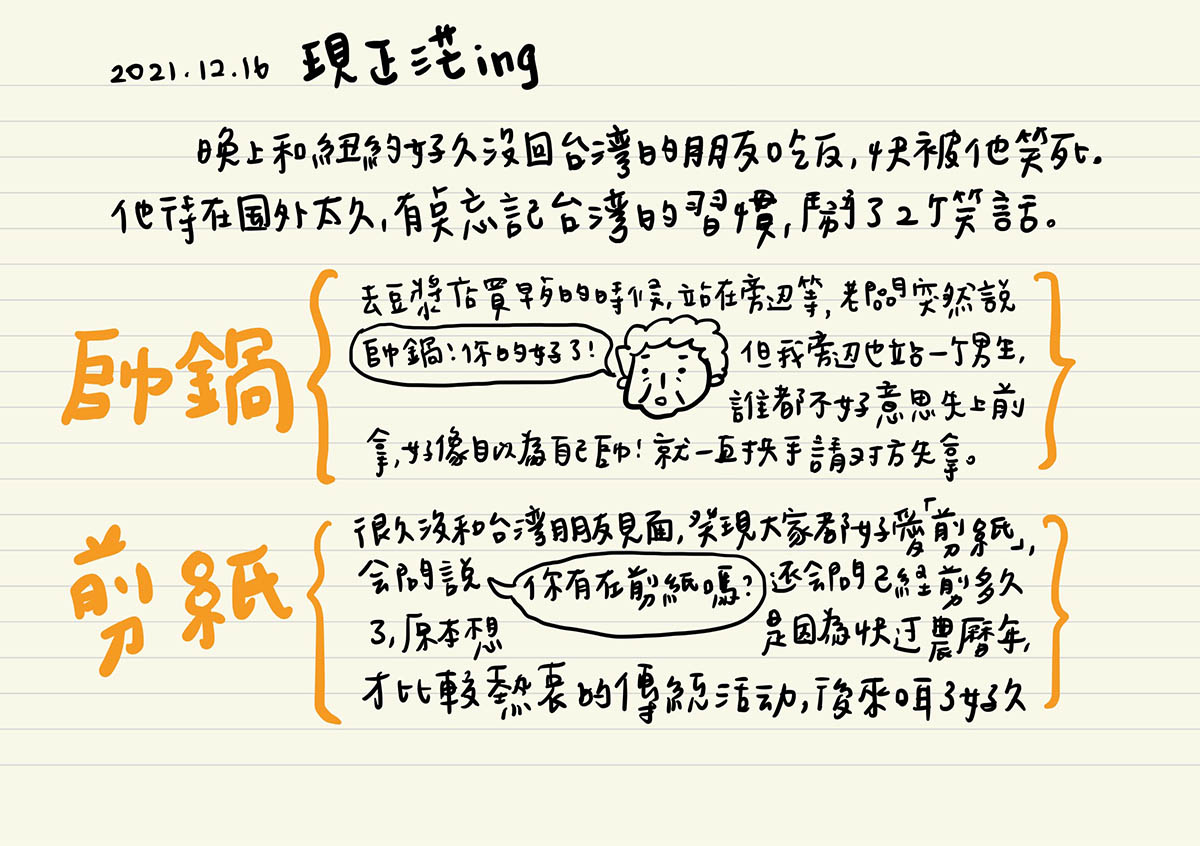 2021.12.16 現正茫ing
晚上和紐約好久沒回台湾的朋友吃飯,快被他笑死.
他待在国外太久,有点忘記台湾的習慣,鬧了2个笑話。
帥鍋
去豆漿店買早歺的時候,站在旁辺等,老闆突然說
帥鍋!你的好了!
但我旁辺也站一个男生,
誰都不好意思先上前
拿,好像自以為自己帥!就一直揮手請对方先拿。
剪紙
很久沒和台湾朋友見面,発現大家都好愛「剪紙」,
会問說
你有在剪紙嗎?
还会問已経剪多久
了,原本想
是因為快过農曆年,
才比較熱衷的傳統活动,後來呾了好久